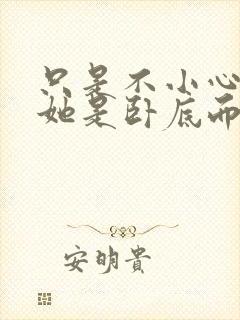 只是不小心
她是卧底而
安明貴